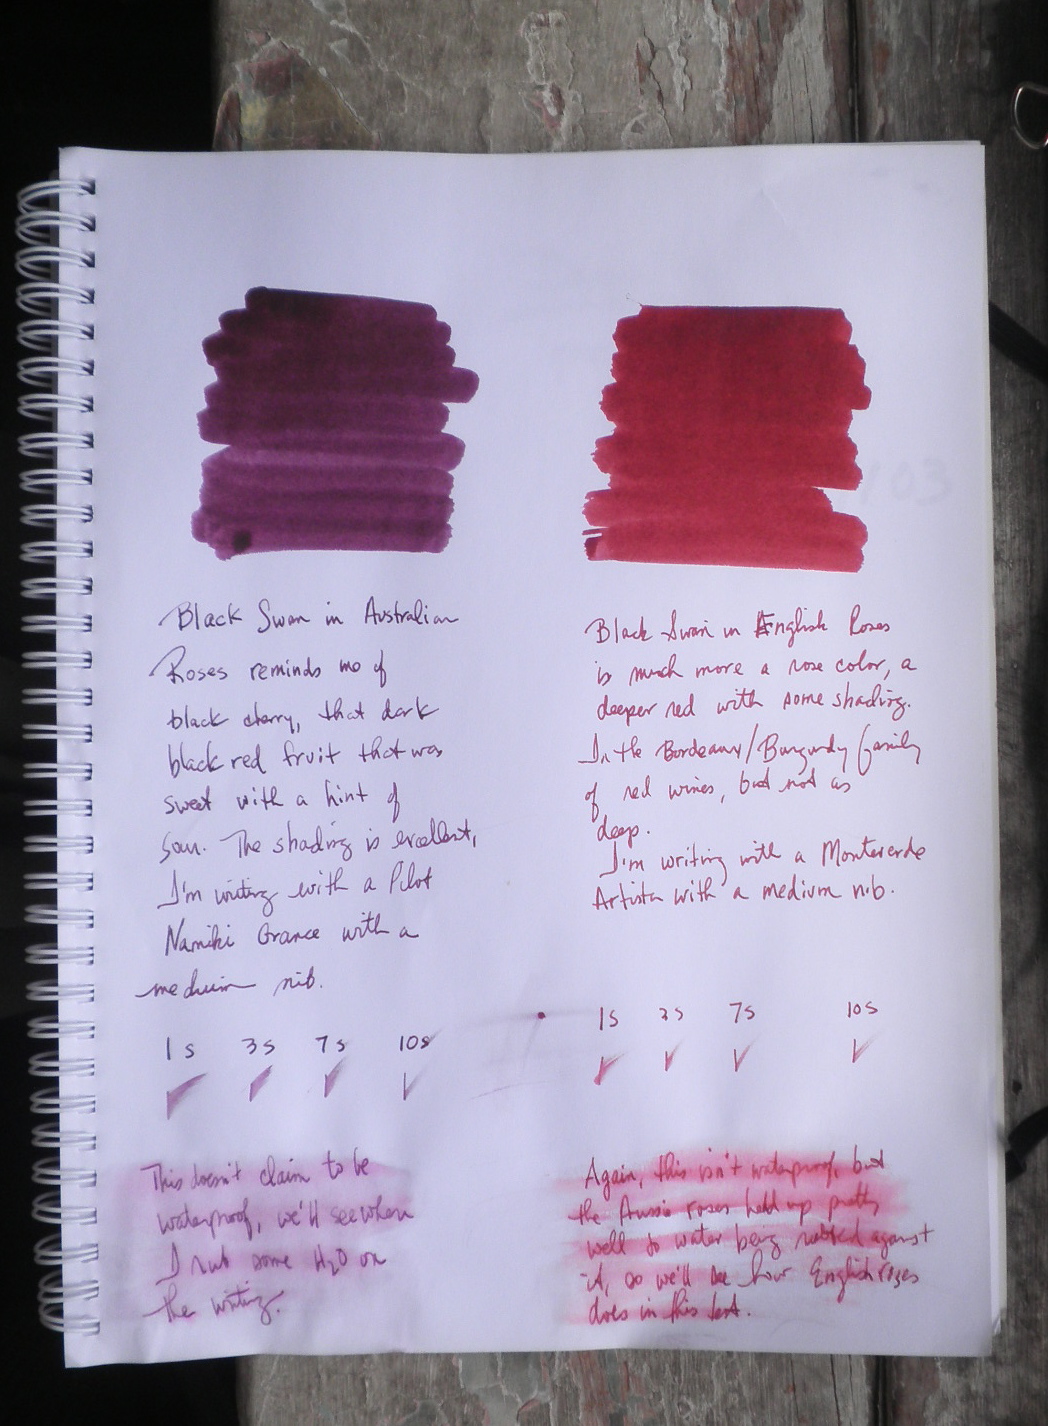 Black Swan in Australian
Roses reminds me of
black cherry, that dark
black red fruit that was
sweet with a hint of
sour. The shading is excellent,
I'm writing with a Pilot
Namiki Grance with a
medium nib.
1s 3s 7s 10s
This doesn't claim to be
waterproof, we'll see when
I rub some H2O on
the writing.
Black Swan in English Roses
is much more a rose color, a
deeper red with some shading.
In the Bordeaux/Burgundy family
of red wines, but not as
deep.
I'm writing with a Monteverde
Artista with a medium nib.
1s 3s 7s 10s
Again, this isn't waterproof, but
the Aussie roses held up pretty
well to water being rubbed against
it, so we'll see how English roses
does in this test.